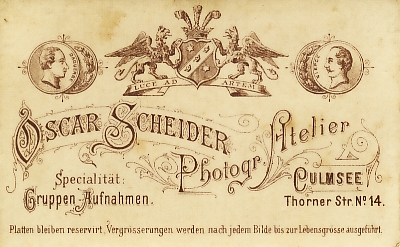 LUCE AD ARTEM
OSCAR SCHEIDER
Photogr. Atelier
Specialität:
Gruppen-Aufnahmen.
CULMSEE
Thorner Str. No 14.
Platten bleiben reservirt, Vergrösserungen werden nach jedem Bilde bis zur Lebensgrösse ausgeführt.